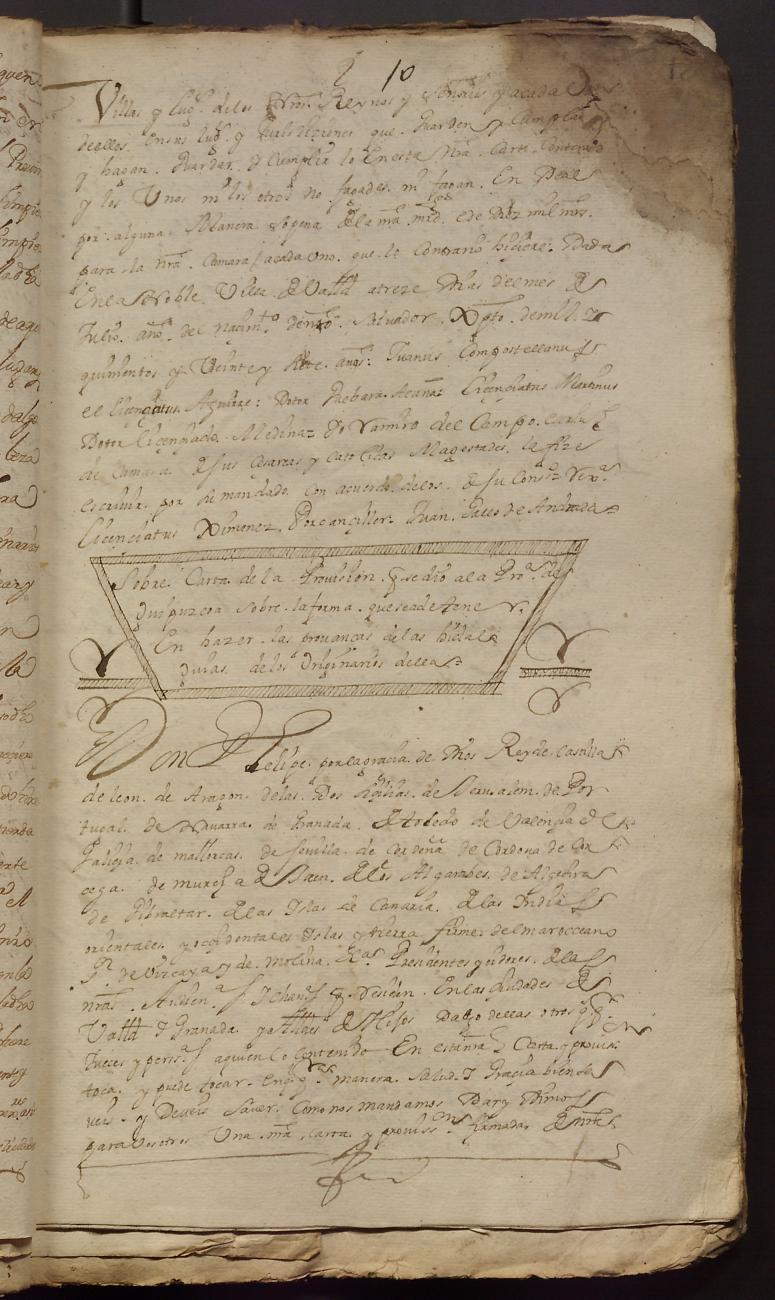 10
Villas y lug.s de los nros Reynos y Señorios y a cada Uno
de ellos. en sus lug.s y Jurisdiziones que. Guarden y Cumplan
y hagan. Guardar. y Cumplir lo En esta nra. Carta. Contenido
y los Unos ni los otros no fagades. ni fagan. En Deal
por. alguna. Manera so pena de la nra. mrd. e de Diez mil mrs.
para la nra. Camara / a cada Uno. que. lo Contrario hiziere. Dada
En la Noble. Villa. de Valld a treze Dias del mes de
Julio. año. del naçim.to de nro. Salvador. Xpto. de mill. y
quinientos y Veinte y siete. años: Juanus Compostellanus
el liçençiatus. Aguirre: Dotor Guebara. Acuña: Liçençiatus Martinus
Dotor liçençiado. Medina: Yo Ramiro del Campo. escriu.
de Camara de sus Cesareas y Catolicas Magestades. la fize
escriuir. por su mandado. con acuerdo. de los. de su Cons.o Rex.da
Licenciatus Ximenez. Por cançiller. Juan. Gallo de Andrada
Sobre. Carta. de la Provission. q se dio a la Pro.a de
Guipuzcoa sobre. la forma. que se a de tener.
En hazer. las provanças de las hidal
guias. de los Originarios de ella
Don Felipe. por la gracia. de Dios Rey de Castilla
de leon. de Aragon. de las. Dos Siçilias. de Jerusalem. de Por
tugal. de Navarra. de Granada. de toledo de Valençia de
Galiçia. de mallorcas. de Sevilla. de Cerdeña de Cordova de Cor
cega. de murçia de Jaen. de los Algarbes. de Algezira
de Gibraltar. de las Islas de Canaria. de las Indias
orientales. y ocçidentales Islas y tierra firme. del mar occeano
S.r de Vizcaya y de. molina. &.a Presidentes y oidores. de las
nras. Audien.as y Chanc.as q. Residen. En las Ciudades de
Valld. y Granada y Alcaldes de Hijos Dalgo de ellas otros q.s q.r
Jueces y pers.as a quien lo contenido En esta nra Carta. y provis.on
toca. y puede tocar. en q.l q.r manera. Salud. y Graçia bien sa
veis. y Deveis Saver. Como nos mandamos Dar y Dimos
para vosotros Una nra carta. y proviss.on firmada. de nros